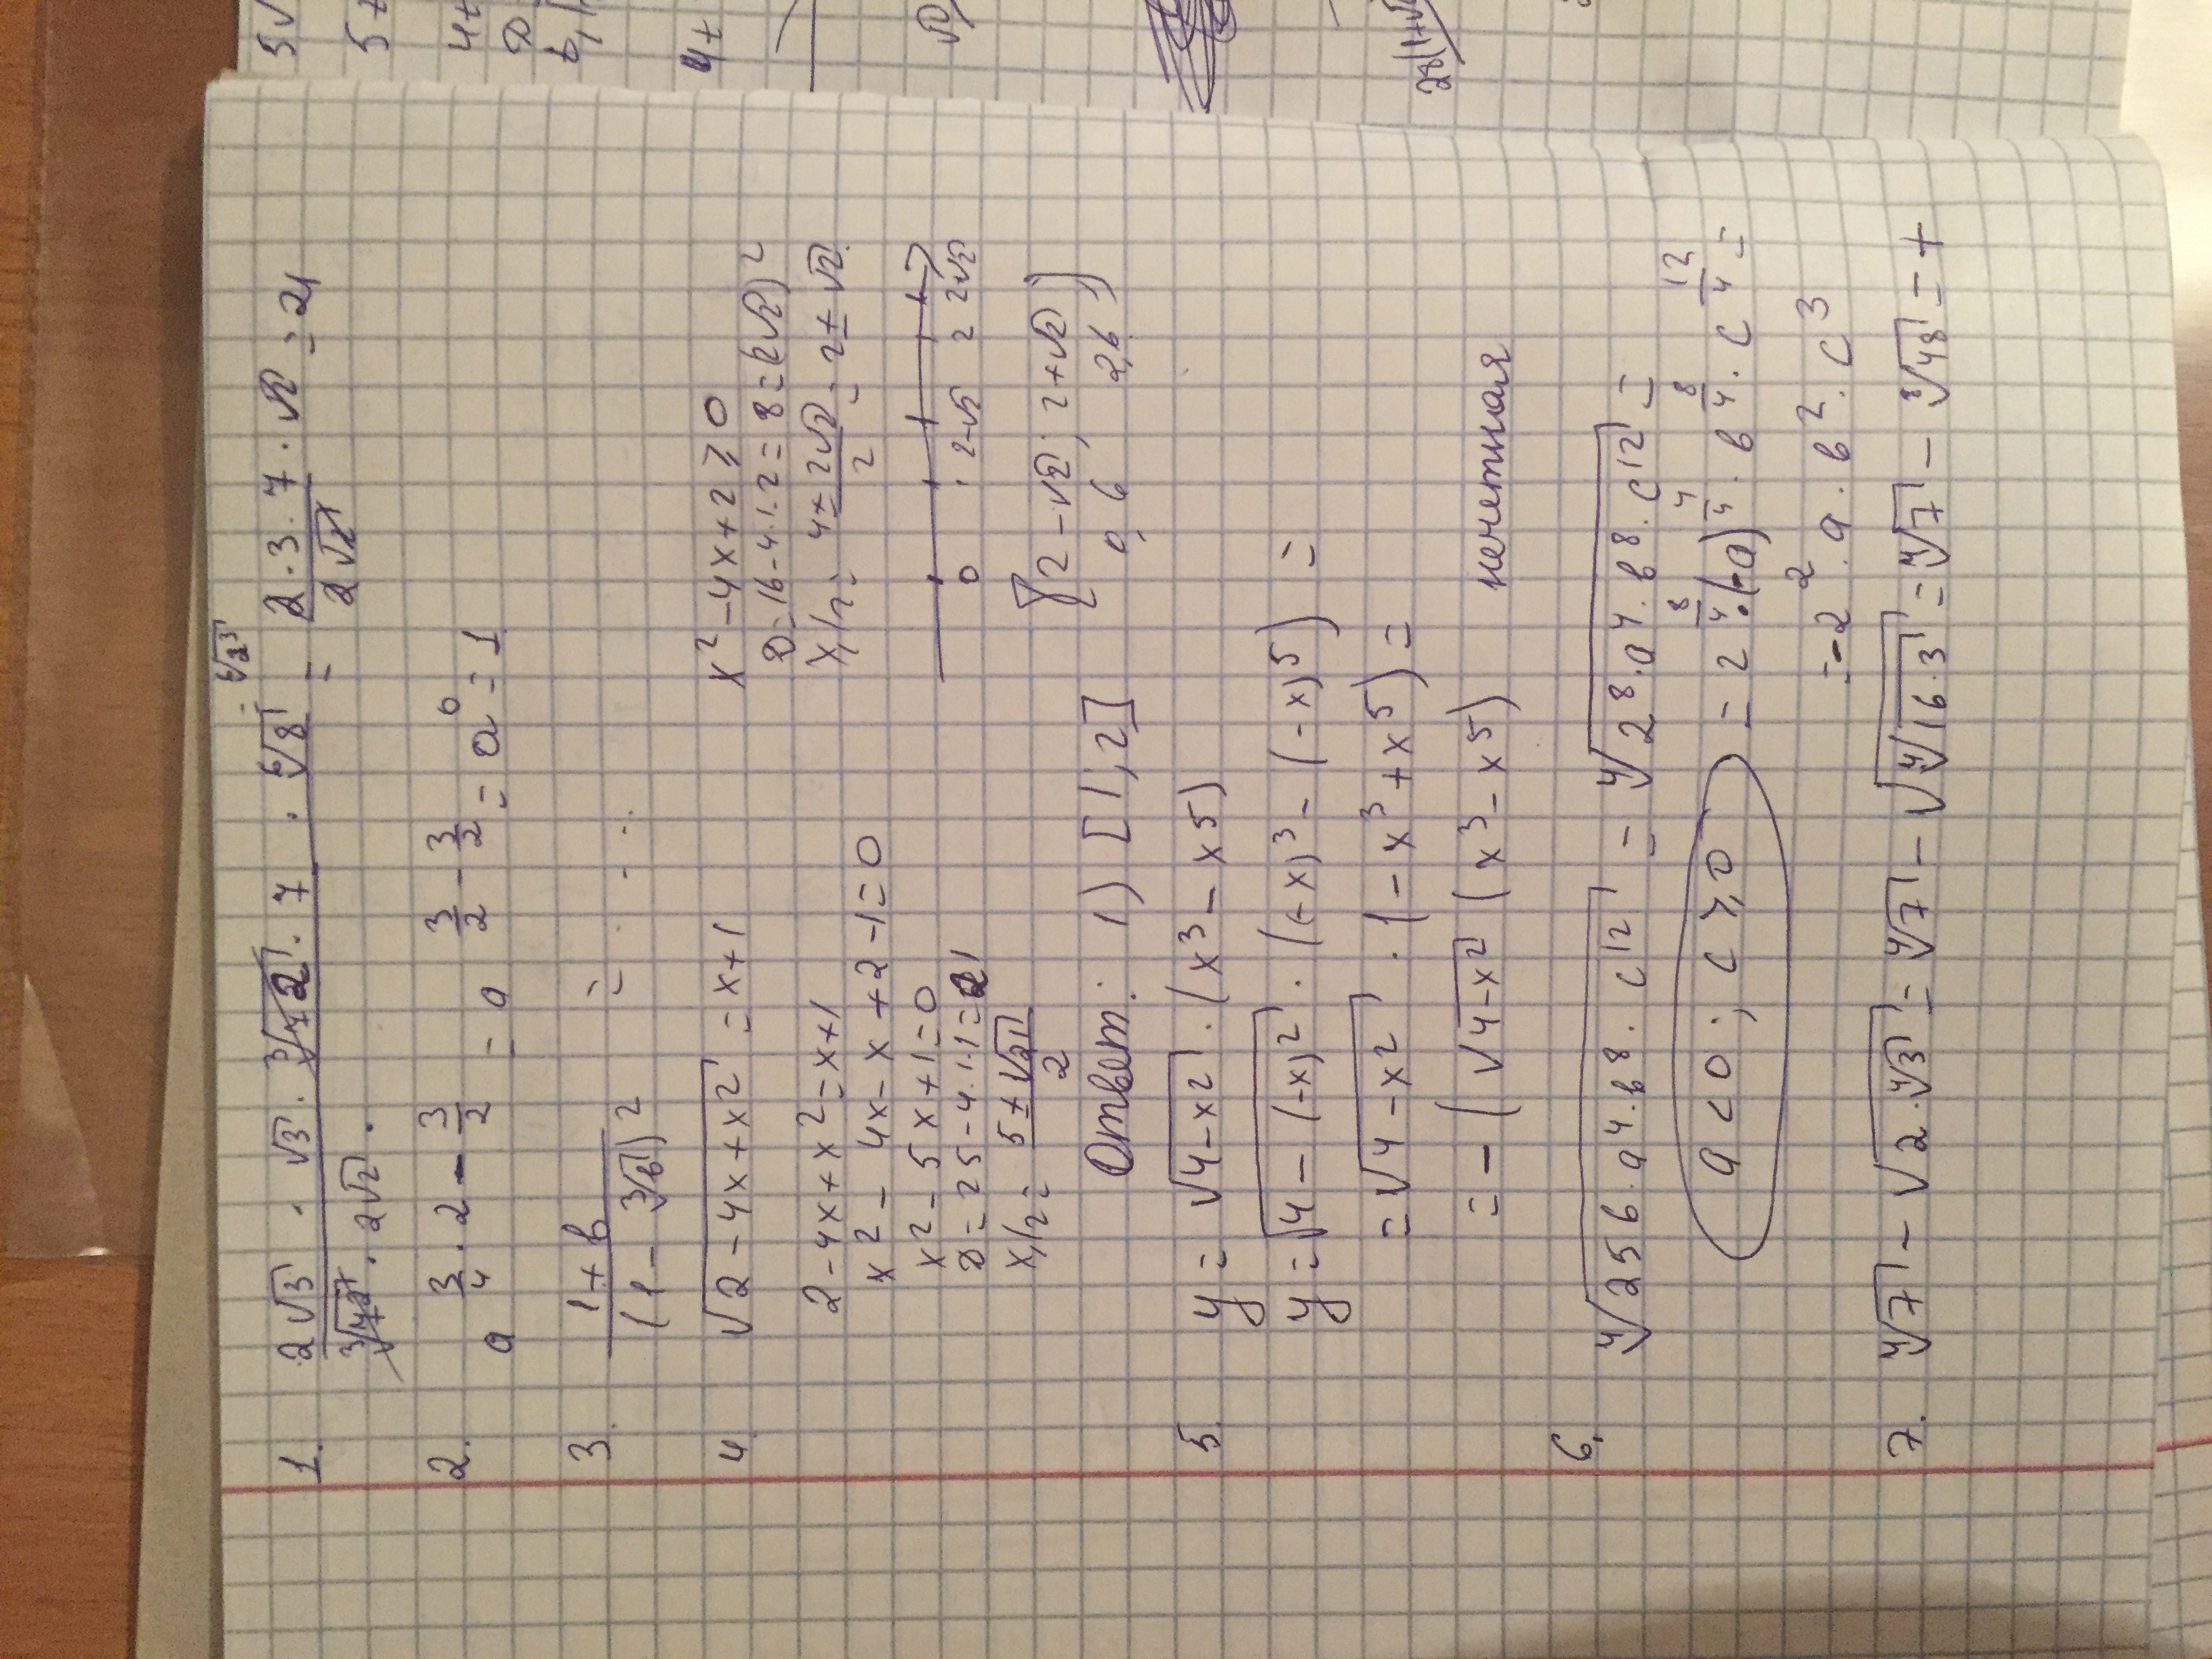 1. (2√3 · √3 · ∛(42) · 7 · ⁶√8) / (∛(42) · 2√2) = (2·3·7·√2) / (2√2) = 21
⁶√(2³)
2. a^(3/4 · 2 − 3/2) = a^(3/2 − 3/2) = a⁰ = 1
3. (1+b) / (1 − ∛b)² =
4. √(2 − 4x + x²) = x+1
2 − 4x + x² = x+1
x² − 4x − x + 2 − 1 = 0
x² − 5x + 1 = 0
D = 25 − 4·1·1 = 21
x₁/₂ = (5 ± √21) / 2
x² − 4x + 2 ≥ 0
D = 16 − 4·1·2 = 8 = (2√2)²
x₁/₂ = (4 ± 2√2) / 2 = 2 ± √2
0 2−√2 2 2√2
[2 − √2; 2+√2]
0,6 2,6
Ответ: 1) [1; 2]
5. y = √(4−x²) · (x³ − x5)
y = √(4 − (−x)²) · ((−x)³ − (−x)⁵) =
= √(4 − x²) · (−x³ + x⁵) =
= − (√(4−x²) (x³ − x⁵) нечетная
6. ⁴√(256·a⁴·b⁸·c¹²) = ⁴√(2⁸·a⁴·b⁸·c¹²) =
a < 0; c ≥ 0 = 2^(8/4)·(−a)^(4/4)·b^(8/4)·c^(12/4) =
= −2²·a·b²·c³
7. ⁴√7 − √(2·⁴√3) = ⁴√7 − √(⁴√(16·3)) = ⁴√7 − ⁸√48 = +
5√
5t
4t
D
t₁/
4t
√2
28(1+√